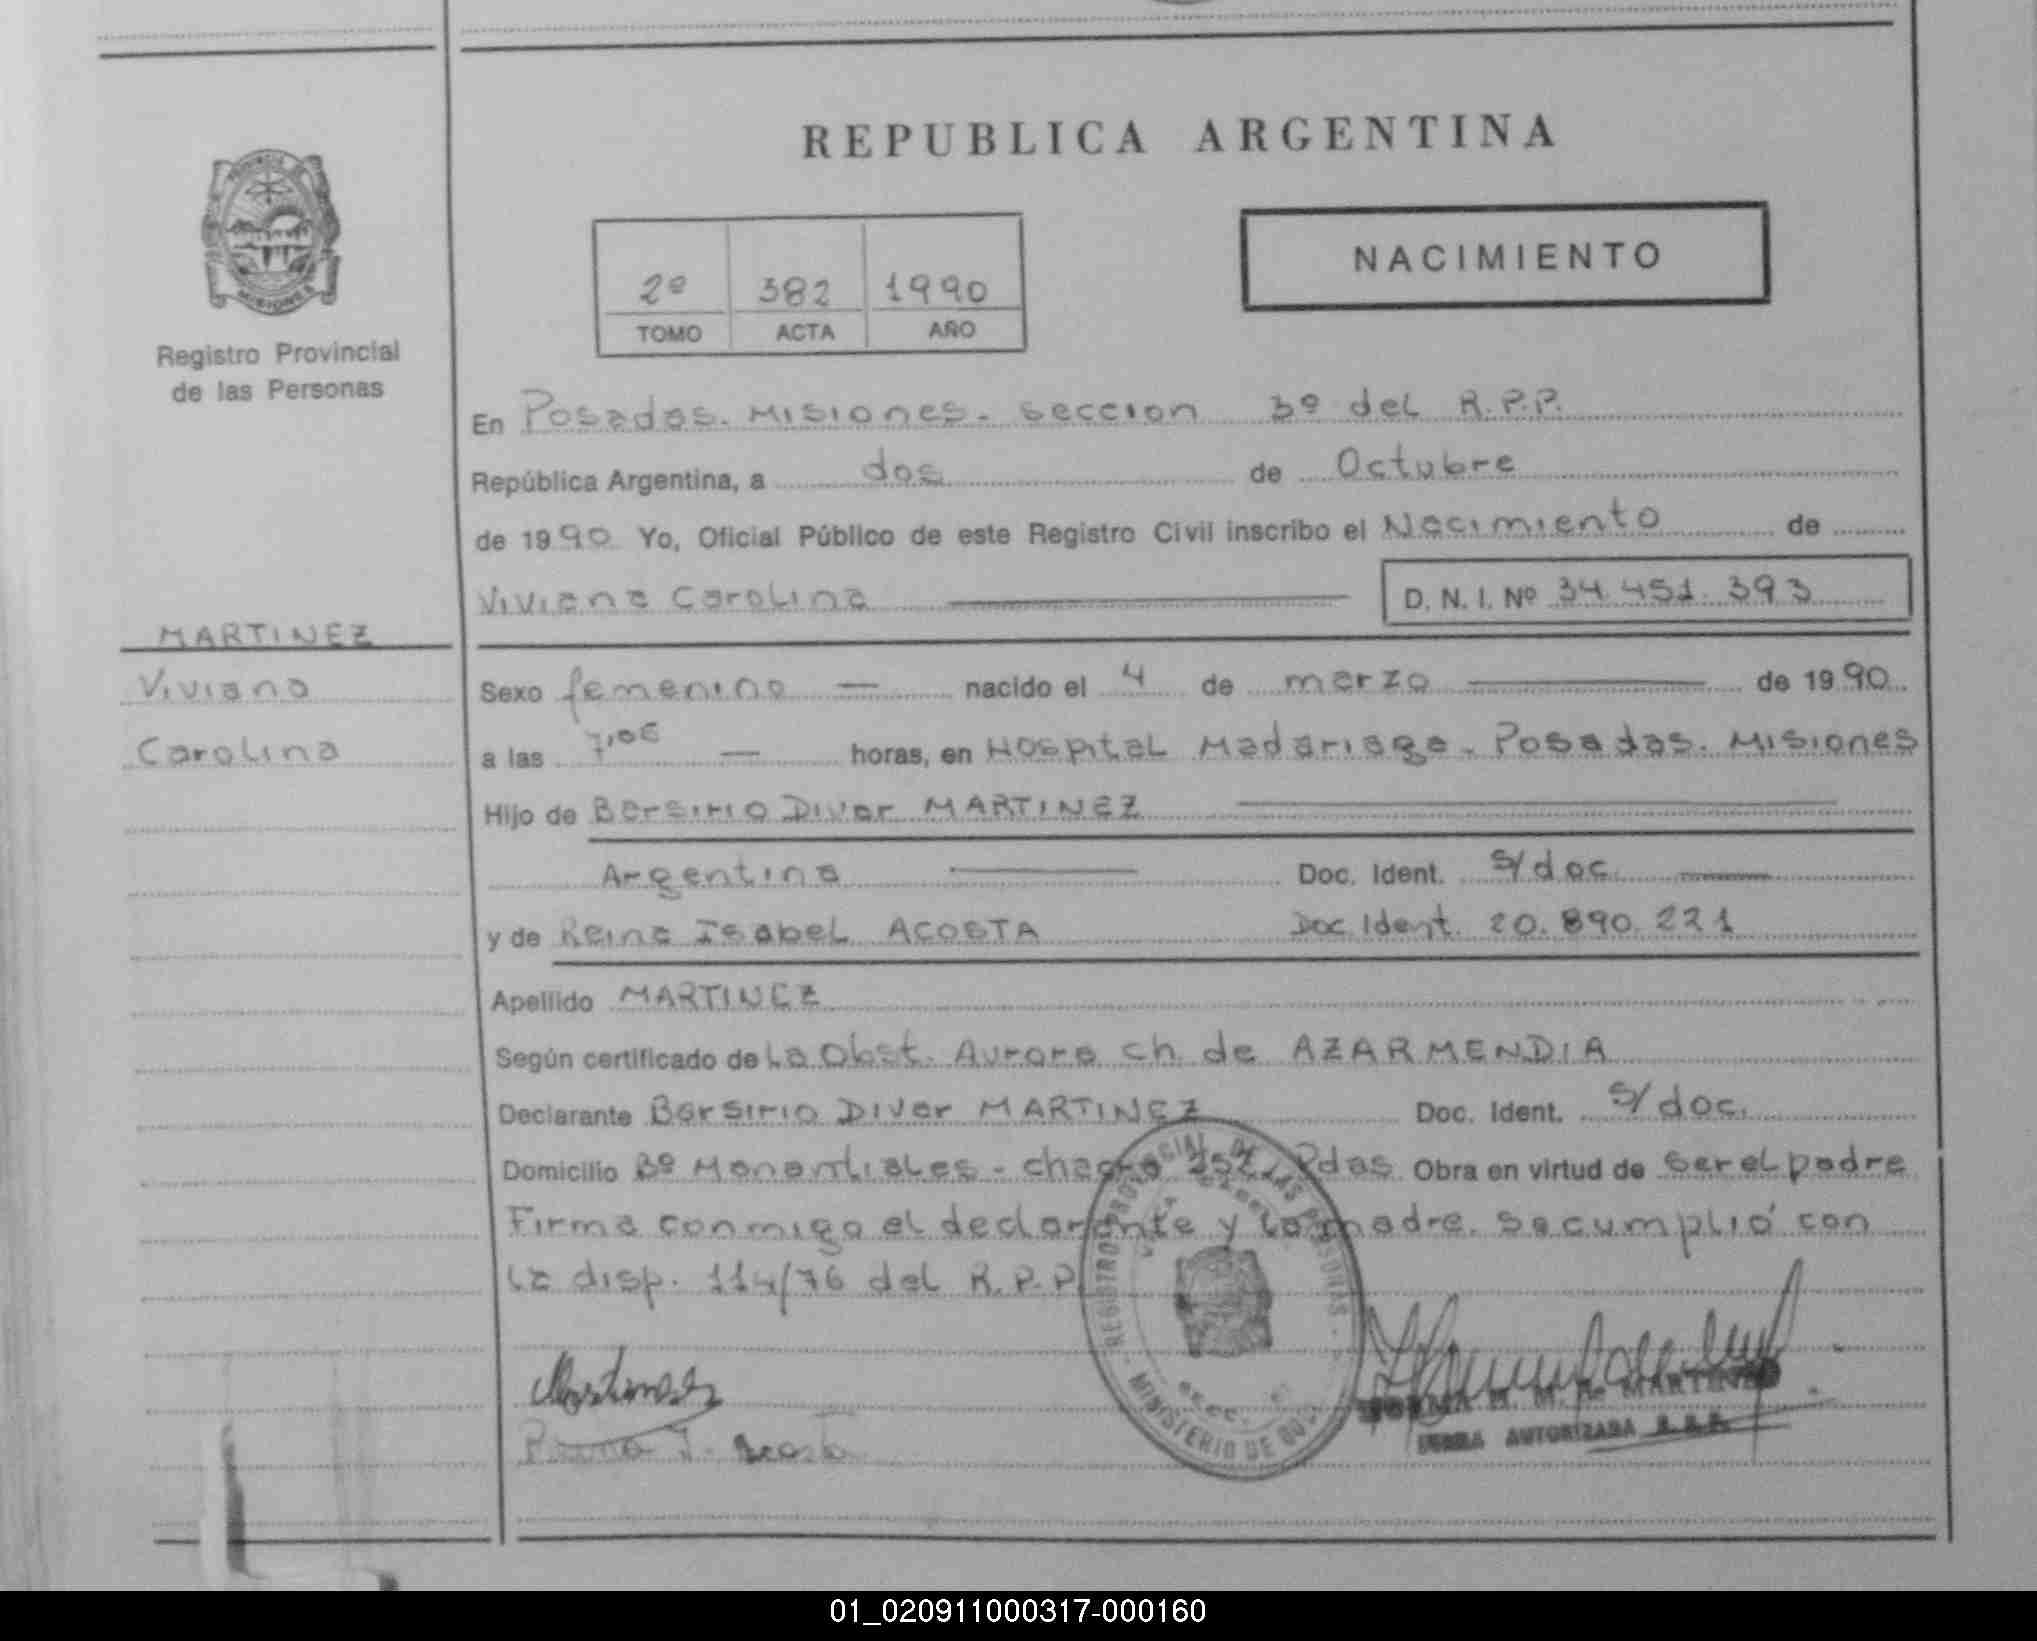 REPUBLICA ARGENTINA
PROVINCIA
MISIONES
Registro Provincial
de las Personas
2º 382 1990
TOMO ACTA AÑO
NACIMIENTO
En Posadas. Misiones. seccion 3º del R.P.P.
República Argentina, a dos de Octubre
de 1990 Yo, Oficial Público de este Registro Civil inscribo el Nacimiento de
Viviana Carolina D. N. I. Nº 34.451.393
MARTINEZ
Viviana
Carolina
Sexo femenino nacido el 4 de marzo de 1990
a las horas, en Hospital Madariaga. Posadas. Misiones
Hijo de Bersirio Diver MARTINEZ
Argentina Doc. Ident. s/doc.
y de Reina Isabel ACOSTA Doc Ident. 20.890.221
Apellido MARTINEZ
Según certificado de La Obst. Aurora ch. de AZARMENDIA
Declarante Bersirio Diver MARTINEZ Doc. Ident. s/doc.
Domicilio Bº Manantiales - chacra Pdas. Obra en virtud de ser el padre
Firma conmigo el declarante y la madre. se cumplió con
la disp. 114/76 del R.P.P.
REGISTRO PROVINCIAL DE LAS PERSONAS
MINISTERIO DE
Martinez
Acosta
MARTINEZ
FIRMA AUTORIZADA
01_020911000317-000160